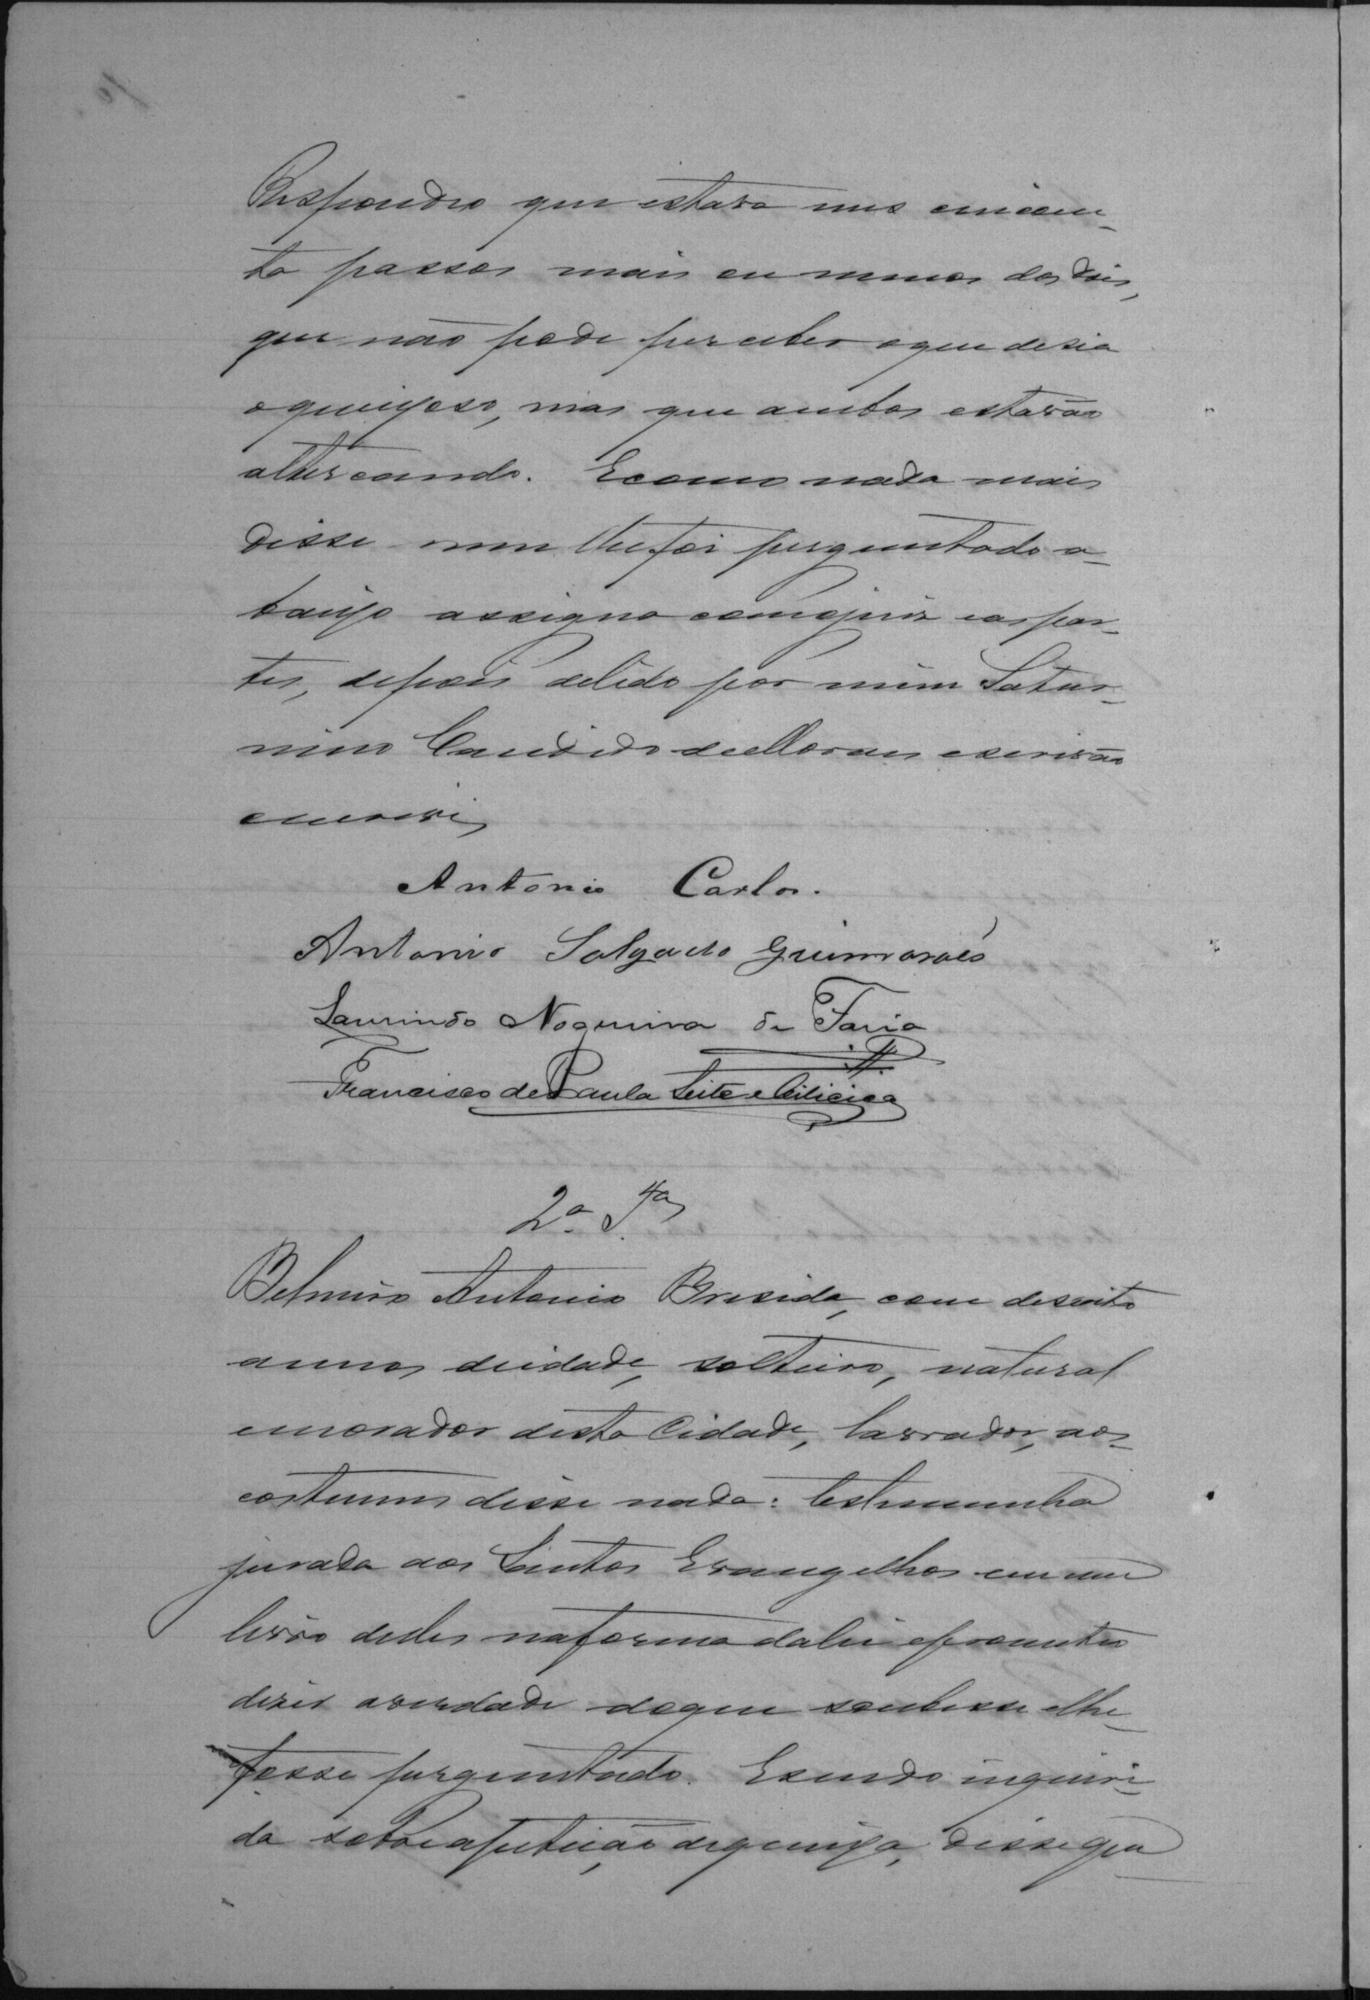 Respondeo que estava uns cincoen-
ta passos mais ou menos dos dois,
que não pode perceber o que desia
o queixoso, mas que ambos estavão
altercando. E como nada mais
disse nem lhe foi perguntado a-
baixo assigna com o juiz e as par-
tes, depois de lido por mim Satur-
nino Candido de Moraes escrivão
escrevi
Antonio Carlos.
Antonio Salgado Guimarães
Laurindo Nogueira de Faria
Francisco de Paula Leite e
2ª T.ª
Belmiro Antonio Brisida, com desoito
annos de idade, solteiro, natural
e morador desta Cidade, lavrador, aos
costumes disse nada: testemunha
jurada aos Santos Evangelhos em um
livro delles na forma da lei e prometteo
dizer a verdade do que soubesse e lhe
fosse perguntado. E sendo inquiri-
da sobre a petição de queixa, disse que